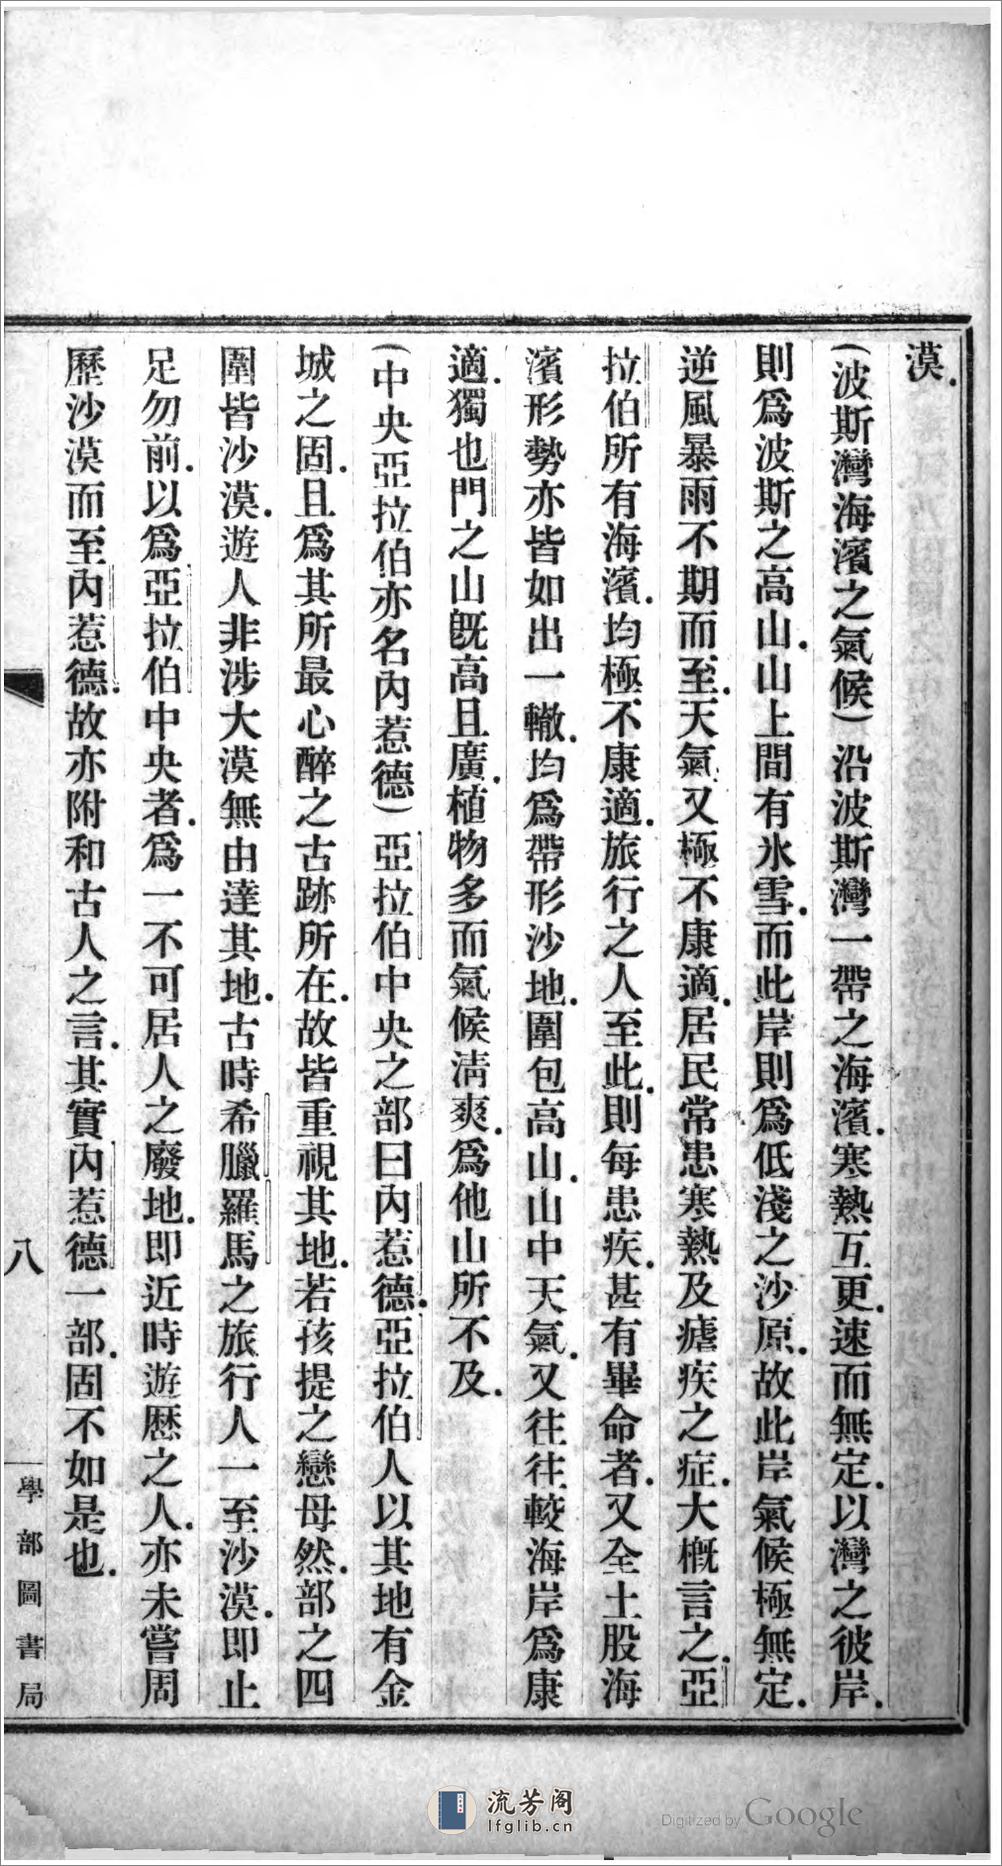 漠.
(波斯灣海濱之氣候)沿波斯灣一帶之海濱.寒熱互更.速而無定.以灣之彼岸.
則爲波斯之高山.山上間有氷雪.而此岸則爲低淺之沙原.故此岸氣候極無定.
逆風暴雨不期而至.天氣又極不康適.居民常患寒熱及瘧疾之症.大概言之.亞
拉伯所有海濱.均極不康適.旅行之人至此.則每患疾.甚有畢命者.又全土股海
濱形勢亦皆如出一轍.均爲帶形沙地.圍包高山.山中天氣.又往往較海岸爲康
適.獨也門之山旣高且廣.植物多而氣候淸爽.爲他山所不及.
(中央亞拉伯亦名內惹德)亞拉伯中央之部曰內惹德.亞拉伯人以其地有金
城之固.且爲其所最心醉之古跡所在.故皆重視其地.若孩提之戀母然.部之四
圍皆沙漠.遊人非涉大漠無由達其地.古時希臘羅馬之旅行人一至沙漠.即止
足勿前.以爲亞拉伯中央者.爲一不可居人之廢地.即近時遊歷之人.亦未嘗周
歷沙漠而至內惹德.故亦附和古人之言.其實內惹德一部.固不如是也.
八
學部圖書局
流芳阁
lfglib.cn
Digitized by Google